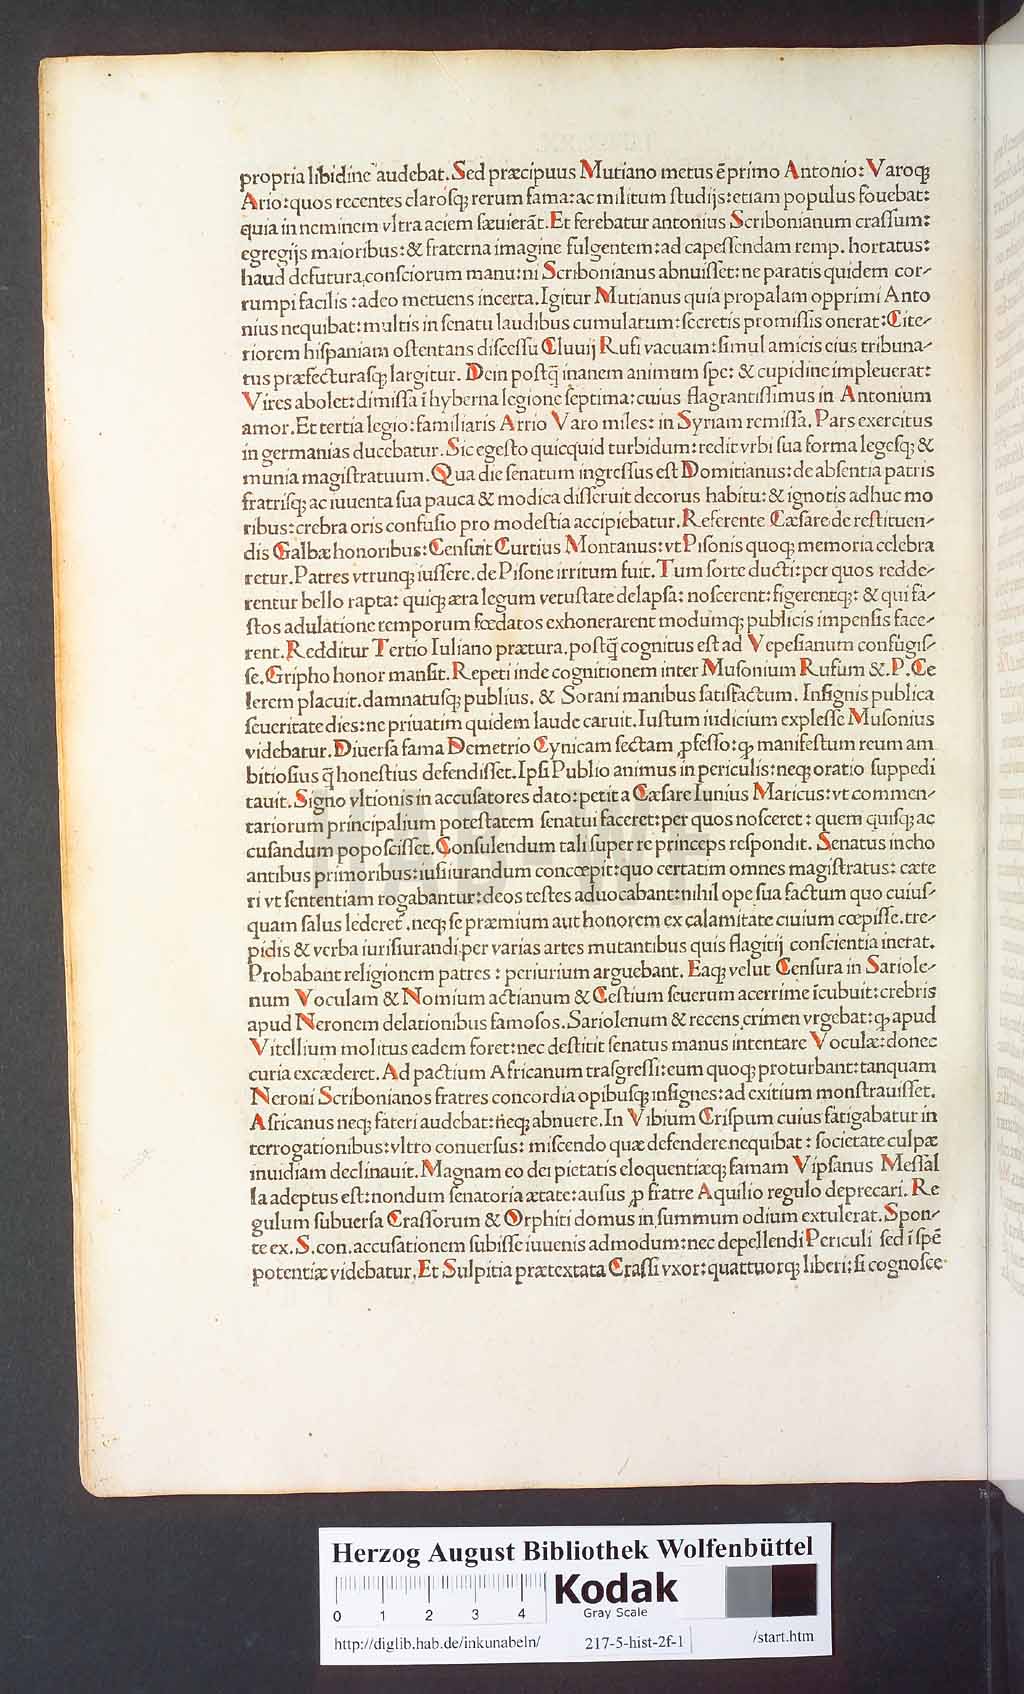 propria libidine audebat. Sed præcipuus Mutiano metus ē primo Antonio: Varoqꝫ
Ario: quos recentes claroſqꝫ rerum fama: ac militum ſtudijs: etiam populus fouebat:
quia in neminem vltra aciem ſæuierāt. Et ferebatur antonius Scribonianum craſſum:
egregijs maioribus: & fraterna imagine fulgentem: ad capeſſendam remp. hortatus:
haud defutura conſciorum manu: ni Scribonianus abnuiſſet: ne paratis quidem cor-
rumpi facilis: adeo metuens incerta. Igitur Mutianus quia propalam opprimi Anto
nius nequibat: multis in ſenatu laudibus cumulatum: ſecretis promiſſis onerat: Cite-
riorem hiſpaniam oſtentans diſceſſu Cluuij Rufi vacuam: ſimul amicis eius tribuna-
tus præfecturaſqꝫ largitur. Dein poſtq̄ inanem animum ſpe: & cupidine impleuerat:
Vires abolet: dimiſſa ī hyberna legione ſeptima: cuius flagrantiſſimus in Antonium
amor. Et tertia legio: familiaris Arrio Varo miles: in Syriam remiſſa. Pars exercitus
in germanias ducebatur. Sic egeſto quicquid turbidum: redit vrbi ſua forma legeſqꝫ &
munia magiſtratuum. Qua die ſenatum ingreſſus eſt Domitianus: de abſentia patris
fratriſqꝫ ac iuuenta ſua pauca & modica diſſeruit decorus habitu: & ignotis adhuc mo
ribus: crebra oris confuſio pro modeſtia accipiebatur. Referente Cæſare de reſtituen-
dis Galbæ honoribus: Cenſuit Curtius Montanus: vt Piſonis quoqꝫ memoria celebra
retur. Patres vtrunqꝫ iuſſere. de Piſone irritum fuit. Tum ſorte ducti: per quos redde-
rentur bello rapta: quiqꝫ æra legum vetuſtate delapſa: noſcerent: figerentqꝫ: & qui fa-
ſtos adulatione temporum fœdatos exhonerarent modumqꝫ publicis impenſis face-
rent. Redditur Tertio Iuliano prætura. poſtq̄ cognitus eſt ad Veſpeſianum confugiſ-
ſe. Gripho honor manſit. Repeti inde cognitionem inter Muſonium Rufum &. P. Ce
lerem placuit. damnatuſqꝫ publius. & Sorani manibus ſatiſfactum. Inſignis publica
ſeueritate dies: ne priuatim quidem laude caruit. Iuſtum iudicium expleſſe Muſonius
videbatur. Diuerſa fama Demetrio Cynicam ſectam ꝓfeſſo: qꝫ manifeſtum reum am
bitioſius q̄ honeſtius defendiſſet. Ipſi Publio animus in periculis: neqꝫ oratio ſuppedi
tauit. Signo vltionis in accuſatores dato: petit a Cæſare Iunius Maricus: vt commen-
tariorum principalium poteſtatem ſenatui faceret: per quos noſceret: quem quiſqꝫ ac
cuſandum popoſciſſet. Conſulendum tali ſuper re princeps reſpondit. Senatus incho
antibus primoribus: iuſiiurandum concœpit: quo certatim omnes magiſtratus: cæte
ri vt ſententiam rogabantur: deos teſtes aduocabant: nihil ope ſua factum quo cuiuſ-
quam ſalus lederet̄. neqꝫ ſe præmium aut honorem ex calamitate ciuium cœpiſſe. tre-
pidis & verba iuriſiurandi per varias artes mutantibus quis flagitij conſcientia inerat.
Probabant religionem patres: periurium arguebant. Eaqꝫ velut Cenſura in Sariole-
num Voculam & Nomium actianum & Ceſtium ſeuerum acerrime īcubuit: crebris
apud Neronem delationibus famoſos. Sariolenum & recens crimen vrgebat: qꝫ apud
Vitellium molitus eadem foret: nec deſtitit ſenatus manus intentare Voculæ: donec
curia excæderet. Ad pactium Africanum trāſgreſſi: eum quoqꝫ proturbant: tanquam
Neroni Scribonianos fratres concordia opibuſqꝫ inſignes: ad exitium monſtrauiſſet.
Africanus neqꝫ fateri audebat: neqꝫ abnuere. In Vibium Criſpum cuius fatigabatur in
terrogationibus: vltro conuerſus: miſcendo quæ defendere nequibat: ſocietate culpæ
inuidiam declinauit. Magnam eo dei pietatis eloquentiæqꝫ famam Vipſanus Meſſal
la adeptus eſt: nondum ſenatoria ætate: auſus ꝓ fratre Aquilio regulo deprecari. Re
gulum ſubuerſa Craſſorum & Orphiti domus in ſummum odium extulerat. Spon-
te ex. S. con. accuſationem ſubiſſe iuuenis admodum: nec depellendi Periculi ſed ī ſpē
potentiæ videbatur. Et Sulpitia prætextata Craſſi vxor: quattuorqꝫ liberi: ſi cognoſce-
HAB-WF
Herzog August Bibliothek Wolfenbüttel
0 1 2 3 4
Kodak
Gray Scale
http://diglib.hab.de/inkunabeln/ 217-5-hist-2f-1 /start.htm